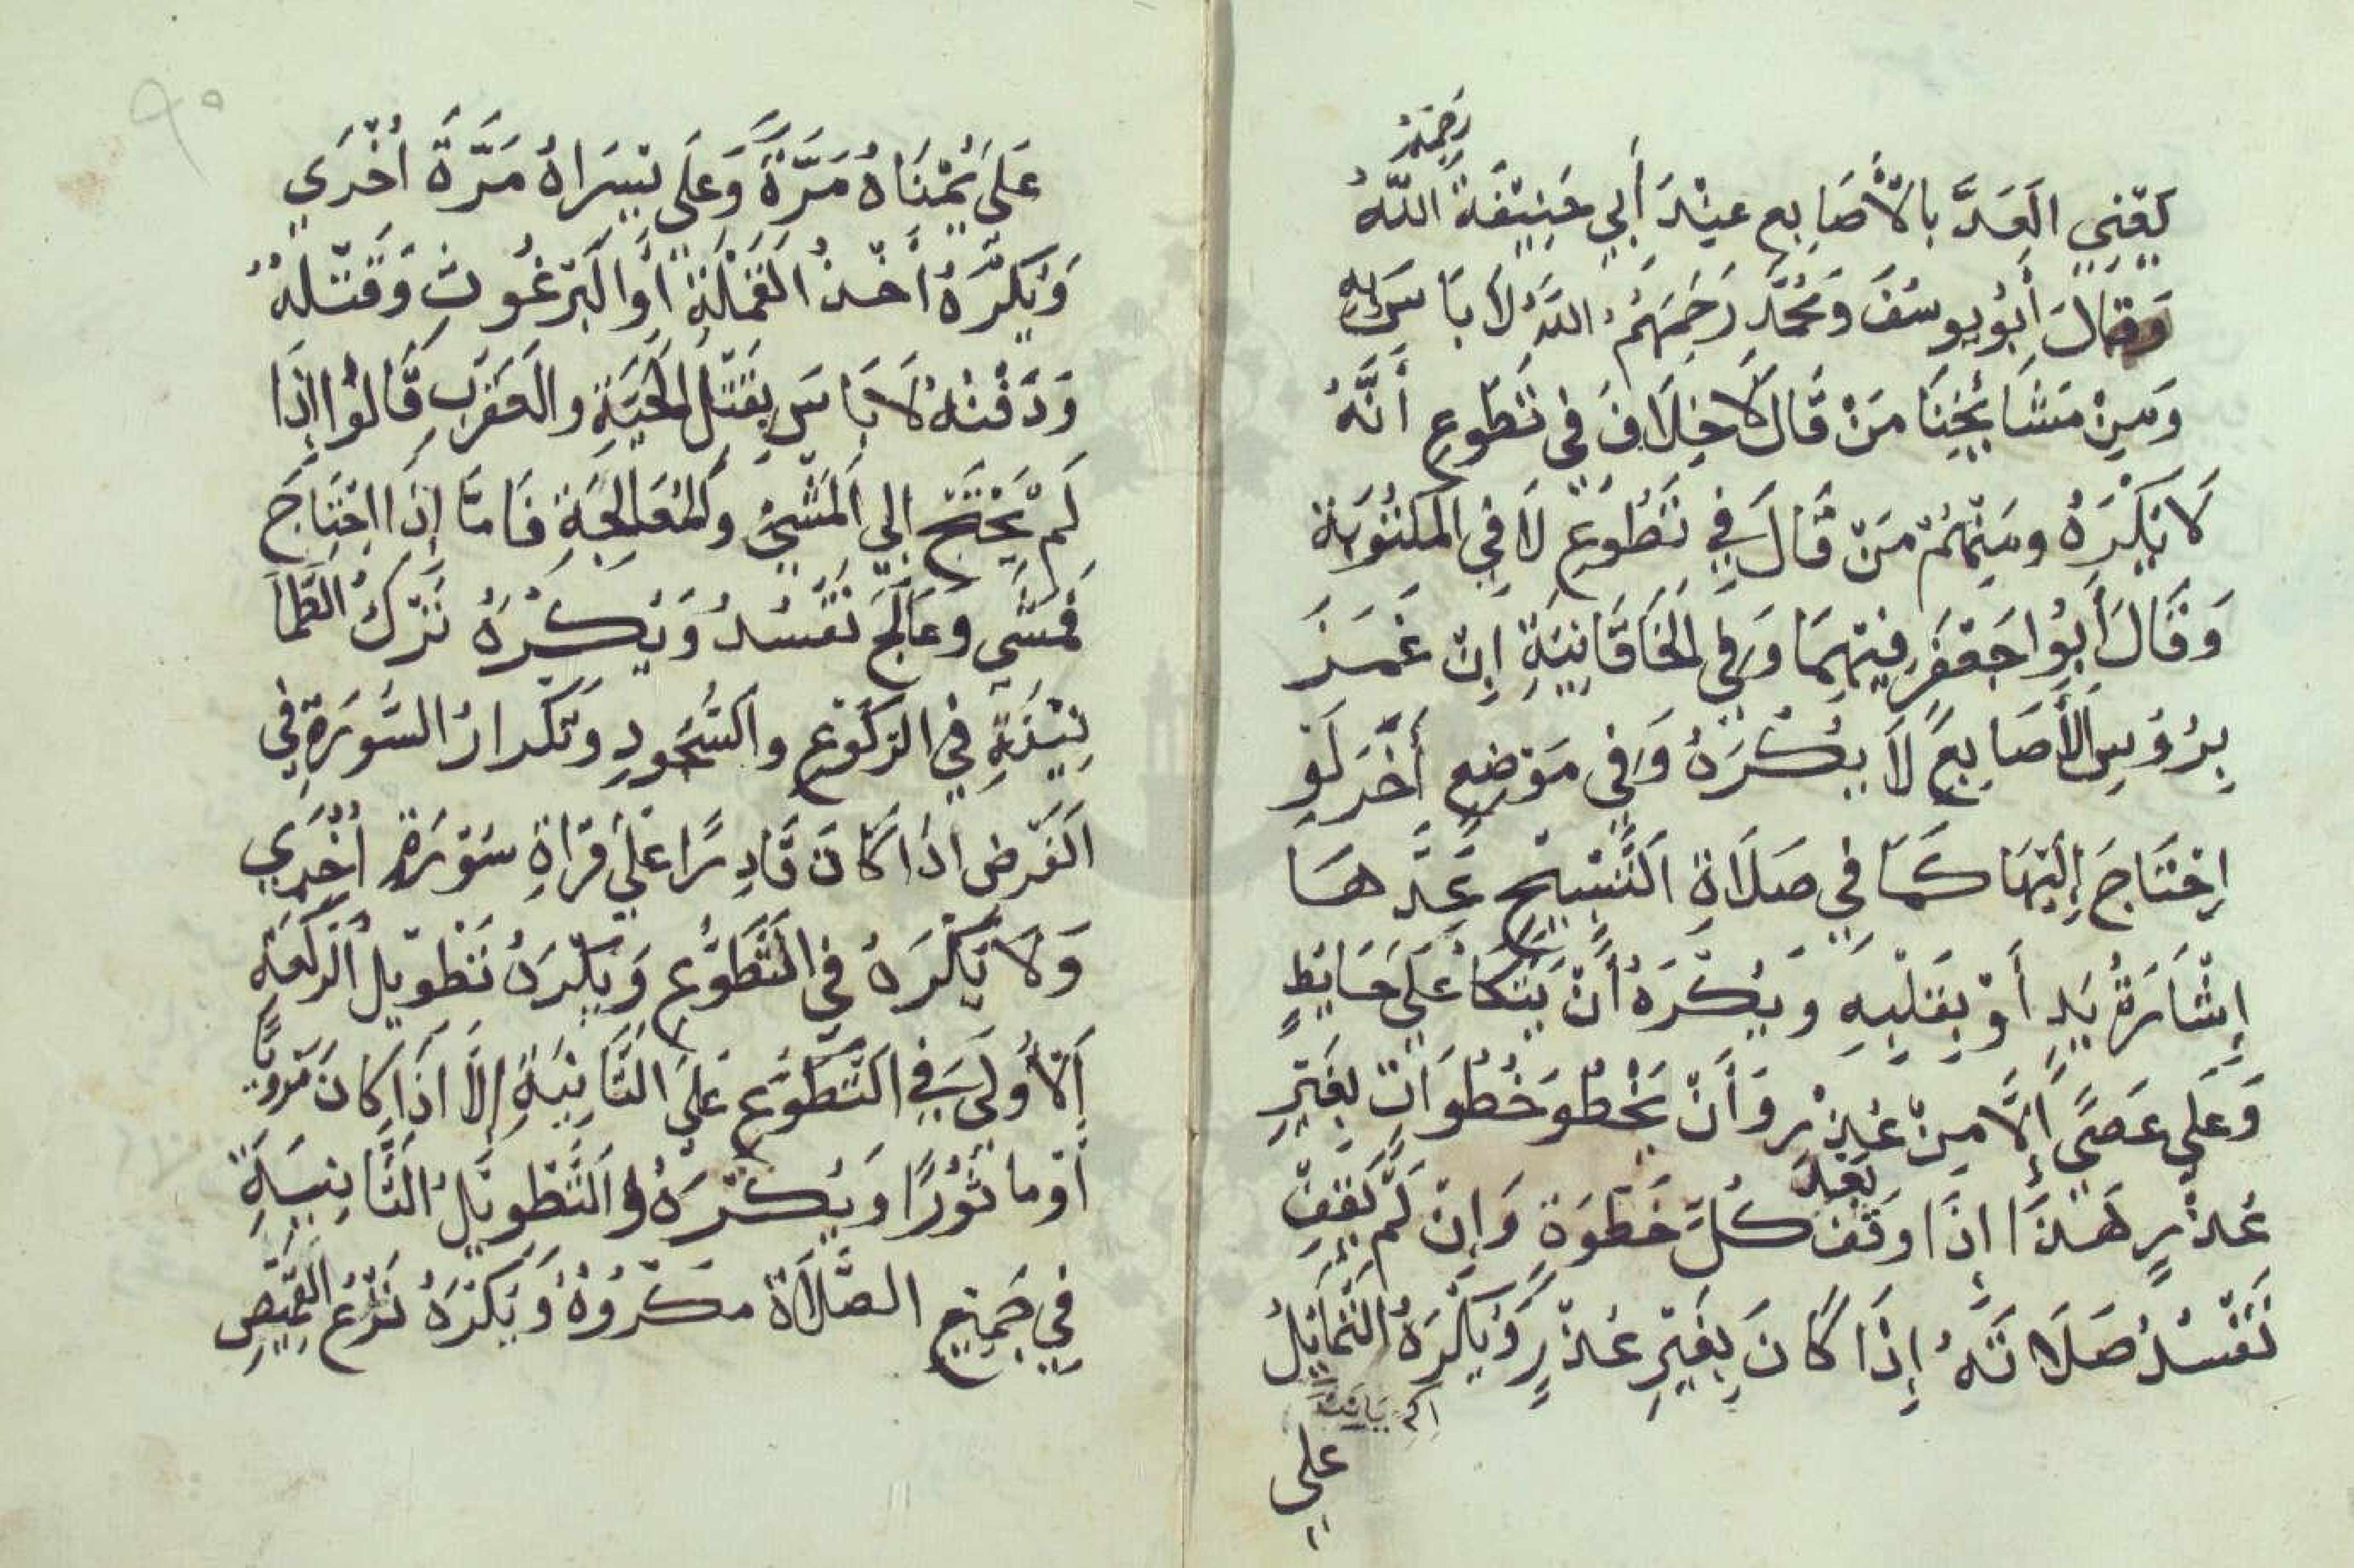 يَعْنِي الْعَدَّ بِالْأَصَابِعِ عِنْدَ أَبِي حَنِيفَةَ رَحِمَهُ اللَّهُ
وَقَالَ أَبُو يُوسُفَ وَمُحَمَّدٍ رَحِمَهُمُ اللَّهُ لَا بَاسَ بِهِ
وَمِنْ مَشَايِخِنَا مَنْ قَالَ لَا خِلَافَ فِي تَطَوُّعٍ أَنَّهُ
لَا يُكْرَهُ وَمِنْهُمْ مَنْ قَالَ فِي تَطَوُّعٍ لَا فِي الْمَكْتُوبَةِ
وَقَالَ أَبُوا جَعْفَرٍ فِيهِمَا وَفِي الْخَاقَانِيَةِ إِنْ غَمَزَ
بِرُؤُسِ الْأَصَابِعِ لَا يُكْرَهُ وَفِي مَوْضِعٍ أَخَرَ لَوْ
إِحْتَاجَ إِلَيْهَا كَمَا فِي صَلَاةِ التَّسْبِيحِ عَدَّهَا
إِشَارَةً يَدٍ أَوْ بِقَلْبِهِ وَيُكْرَهُ أَنْ يَتَّكَأَ عَلَى حَايِطٍ
وَعَلَى عَصًى إِلَّا مِنْ عُذْرٍ وَأَنْ يَخْطُو خُطُوَاتٍ بِغَيْرِ
عُذْرٍ هَذَا إِذَا وَقَفَ بَعْدَ كُلِّ خَطْوَةٍ وَإِنْ لَمْ يَقِفْ
تَفْسُدُ صَلَاتُهُ إِذَا كَانَ بِغَيْرِ عُذْرٍ وَيُكْرَهُ التَّمَايُلُ
عَلَى
عَلَى يُمْنَاهُ مَرَّةً وَعَلَى يَسِرَاهُ مَرَّةً أُخْرَى
وَيُكْرَهُ أَخْذُ الْقَمْلَةِ أَوِ الْبَرْغُوثِ وَقَتْلَهُ
وَدَفْنُهُ لَا بَاسَ بِقَتْلِ الْحَيَّةِ وَالْعَقْرَبِ قَالُوا إِذَا
لَمْ يَحْتَجْ إِلَى الْمَشْيِ وَالْمُعَالَجَةِ فَامَّا إِذَا احْتَاجَ
فَمَشَى وَعَالَجَ تَفْسُدُ وَيُكْرَهُ تَرْكُ الطُّمَا
نِيْنَةِ فِي الرُّكُوعِ وَالسُّجُودِ وَتَكْرَارُ السُّورَةِ فِي
الْفَرْضِ اذَا كَانَ قَادِرًا عَلَى قَرْاةِ سُوْرَةٍ أُخْرَى
وَلَا يُكْرَهُ فِي التَّطَوُّعِ وَيُكْرَهُ تَطْوِيلُ الرَّكْعَةِ
الْأُولَى فِي التَّطَوُّعِ عَلَى الثَّانِيَةِ إِلَّا اذَا كَانَ مَرْوِيًّا
أَوْ مَاثُوْرًا وَيُكْرَهُ وَالتَّطْوِيلُ الثَّانِيَةِ
فِي جَمِيْعِ الصَّلَاةِ مَكْرُوْهٌ وَيُكْرَهُ نَزْعُ الْقَمِيْصِ